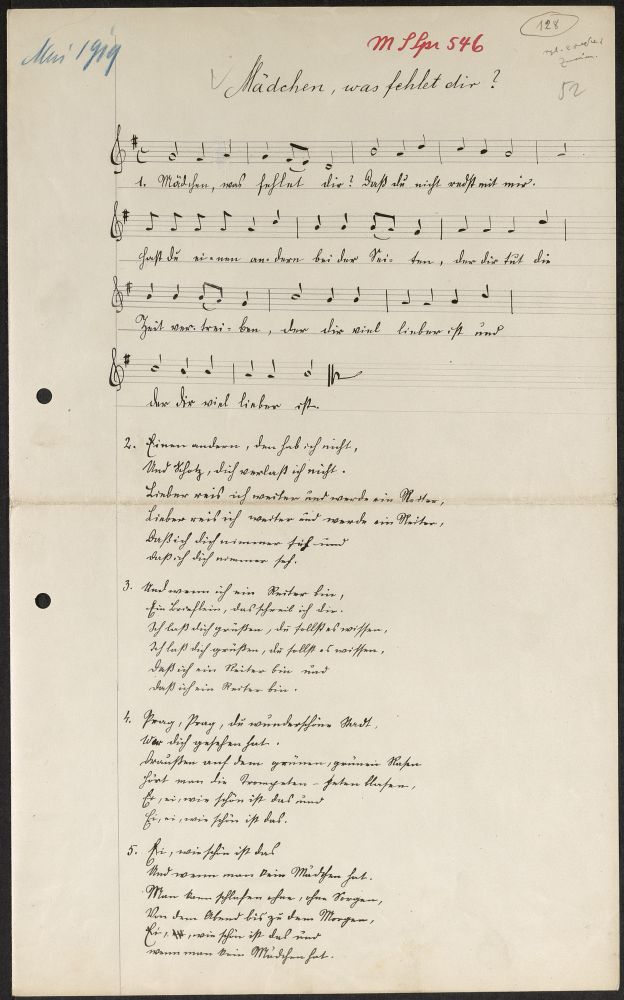 128
Mai 1919
M S Spr 546
52
Mädchen, was fehlet dir?
1. Mädchen, was fehlet dir? Daß du nicht redst mit mir.
Hast du ei-nen an-dern bei der Sei-ten, der dir tut die
Zeit ver-trei-ben, der dir viel lieber ist und
der dir viel lieber ist.
2. Einen andern, den hab ich nicht,
Und Schatz, dich verlaß ich nicht.
Lieber reis ich weiter und werde ein Reiter,
Lieber reis ich weiter und werde ein Reiter,
Daß ich dich nimmer seh und
daß ich dich nimmer seh.
3. Und wenn ich ein Reiter bin,
Ein Brieflein, das schreib ich dir.
Ich laß dich grüßen, du sollst es wissen,
Ich laß dich grüßen, du sollst es wissen,
Daß ich ein Reiter bin und
daß ich ein Reiter bin.
4. Prag, Prag, du wunderschöne Stadt,
Wer dich gesehen hat.
Draußen auf dem grünen, grünen Rasen
Hört man die Trompeten - blasen,
Ei, ei, wie schön ist das und
Ei, ei, wie schön ist das.
5. Ei, wie schön ist das
Und wenn man kein Mädchen hat.
Man kann schlafen ohne, ohne Sorgen,
Von dem Abend bis zu dem Morgen,
Ei, wie schön ist das und
wenn man kein Mädchen hat.